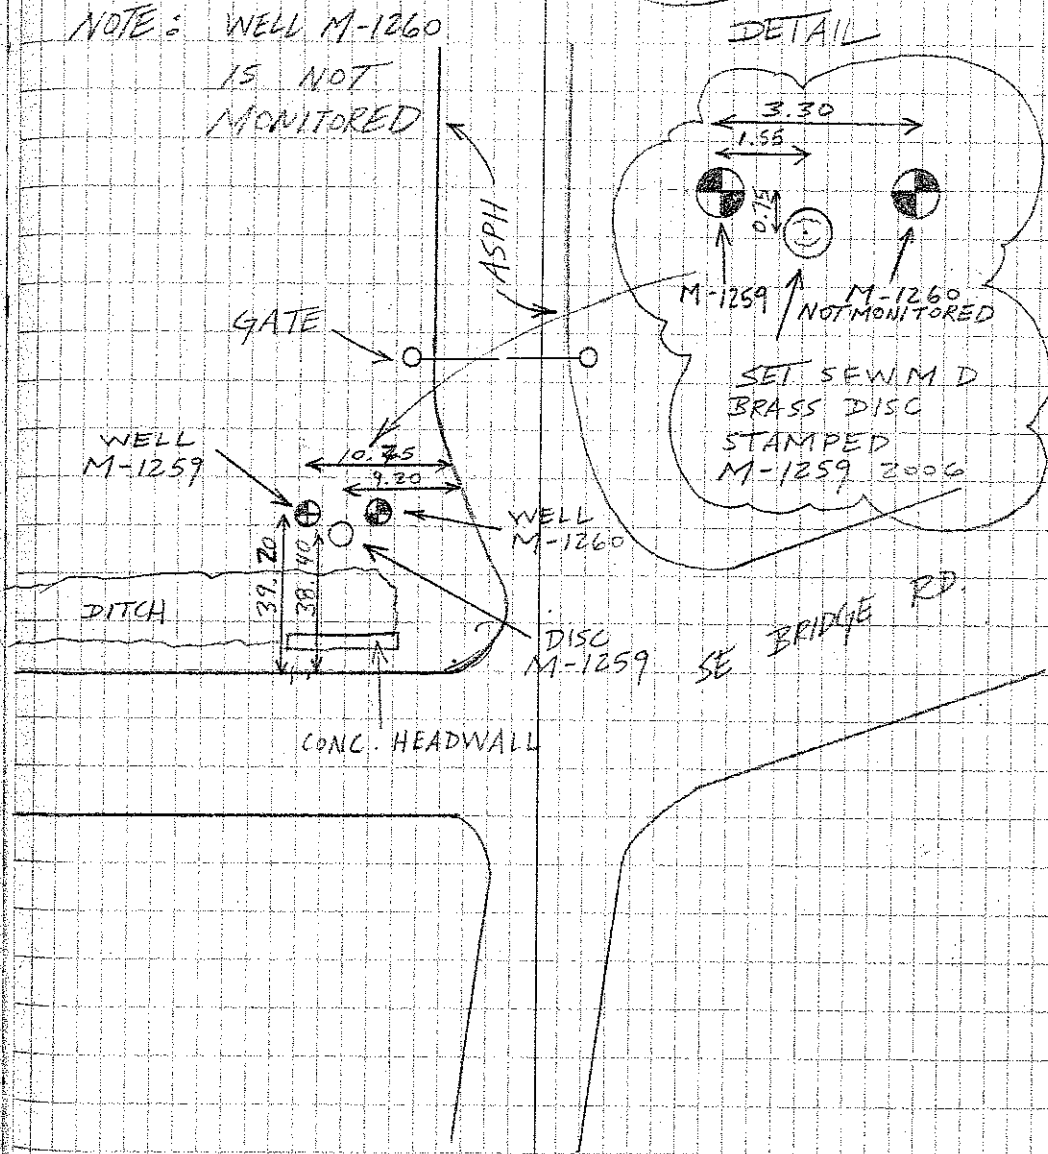 NOTE: WELL M-1260
IS NOT
MONITORED
DETAIL
3.30
1.55
0.75
M-1259
M-1260
NOT MONITORED
SET SFWMD
BRASS DISC
STAMPED
M-1259 2006
ASPH
GATE
WELL
M-1259
10.75
9.20
WELL
M-1260
39.20
38.40
DITCH
DISC
M-1259
SE BRIDGE RD.
CONC. HEADWALL